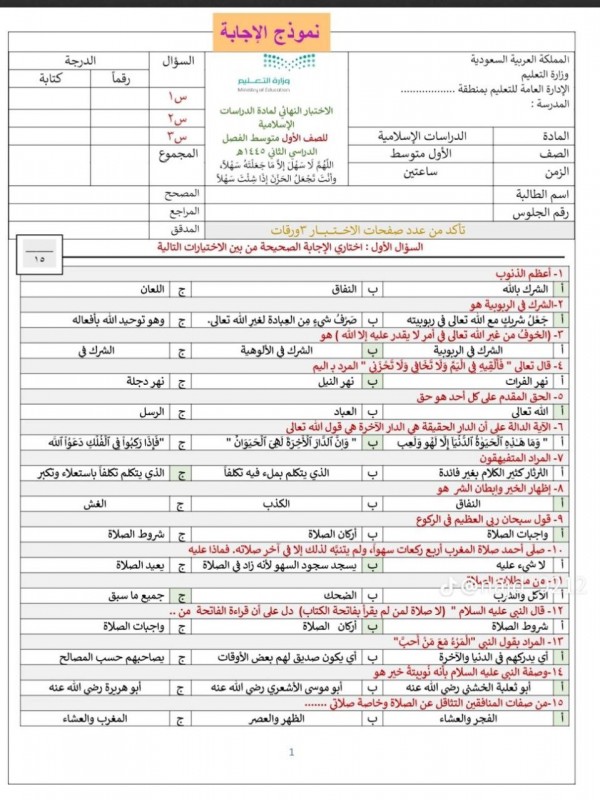 نموذج الإجابة
المملكة العربية السعودية
وزارة التعليم
الإدارة العامة للتعليم بمنطقة ..................
المدرسة :
وزارة التعليم
Ministry of Education
الاختبار النهائي لمادة الدراسات الإسلامية
للصف الأول متوسط الفصل الدراسي الثاني ١٤٤٥هـ
اللَّهُمَّ لَا سَهْلَ إِلَّا مَا جَعَلْتَهُ سَهْلًا، وَأَنْتَ تَجْعَلُ الْحَزْنَ إِذَا شِئْتَ سَهْلًا
السؤال الدرجة
رقماً كتابة
س١
س٢
س٣
المجموع
المادة الدراسات الإسلامية
الصف الأول متوسط
الزمن ساعتين
اسم الطالبة
رقم الجلوس
المصحح
المراجع
المدقق
تأكد من عدد صفحات الاختبار ٣ورقات
السؤال الأول : اختاري الإجابة الصحيحة من بين الاختيارات التالية
١٥
١- أعظم الذنوب
أ الشرك بالله ب النفاق ج اللعان
٢-الشرك في الربوبية هو
أ جَعْلُ شريكٍ مع الله تعالى في ربوبيته ب صَرْفُ شيءٍ مِن العِبادة لغير الله تعالى. ج وهو توحيد الله بأفعاله
٣- (الخوف من غير الله تعالى في أمر لا يقدر عليه إلا الله ) هو
أ الشرك في الربوبية ب الشرك في الألوهية ج الشرك في
٤- قال تعالى " فَأَلْقِيهِ فِي الْيَمِّ وَلَا تَخَافِي وَلَا تَحْزَنِي " المرد بـ اليم
أ نهر الفرات ب نهر النيل ج نهر دجلة
٥- الحق المقدم على كل أحد هو حق
أ الله تعالى ب العباد ج الرسل
٦- الآية الدالة على أن الدار الحقيقة هي الدار الآخرة هي قول الله تعالى
أ " وَمَا هَـٰذِهِ الْحَيَوٰةُ الدُّنْيَا إِلَّا لَهْوٌ وَلَعِبٌ ب " وَإِنَّ الدَّارَ الْآخِرَةَ لَهِيَ الْحَيَوَانُ " ج "فَإِذَا رَكِبُوا فِي الْفُلْكِ دَعَوُا اللَّهَ
٧- المراد المتفيهقون
أ الثرثار كثير الكلام بغير فائدة ب الذي يتكلم بملء فيه تكلفاً ج الذي يتكلم تكلفاً باستعلاء وتكبر
٨- إظهار الخير وإبطان الشر هو
أ النفاق ب الكذب ج الغش
٩- قول سبحان ربي العظيم في الركوع
أ واجبات الصلاة ب أركان الصلاة ج شروط الصلاة
١٠- صلَّى أحمد صلاة المغرب أربع ركعات سهواً، ولم يتنبَّه لذلك إلا في آخر صلاته. فماذا عليه
أ لا شيء عليه ب يسجد سجود السهو لأنه زاد في الصلاة ج يعيد الصلاة
١١- من مبطلات الصلاة
أ الأكل والشرب ب الضحك ج جميع ما سبق
١٢- قال النبي عليه السلام " (لا صلاة لمن لم يقرأ بفاتحة الكتاب) دل على أن قراءة الفاتحة من ..
أ شروط الصلاة ب أركان الصلاة ج واجبات الصلاة
١٣- المراد بقول النبي "المَرْءُ مَعَ مَنْ أحبَّ"
أ أي يدركهم في الدنيا والآخرة ب أي يكون صديق لهم بعض الأوقات ج يصاحبهم حسب المصالح
١٤-وصفة النبي عليه السلام بأنه نُوَيبِتَةُ خيرٍ هو
أ أبو ثعلبة الخشني رضي الله عنه ب أبو موسى الأشعري رضي الله عنه ج أبو هريرة رضي الله عنه
١٥-من صفات المنافقين التثاقل عن الصلاة وخاصة صلاتي .......
أ الفجر والعشاء ب الظهر والعصر ج المغرب والعشاء
1